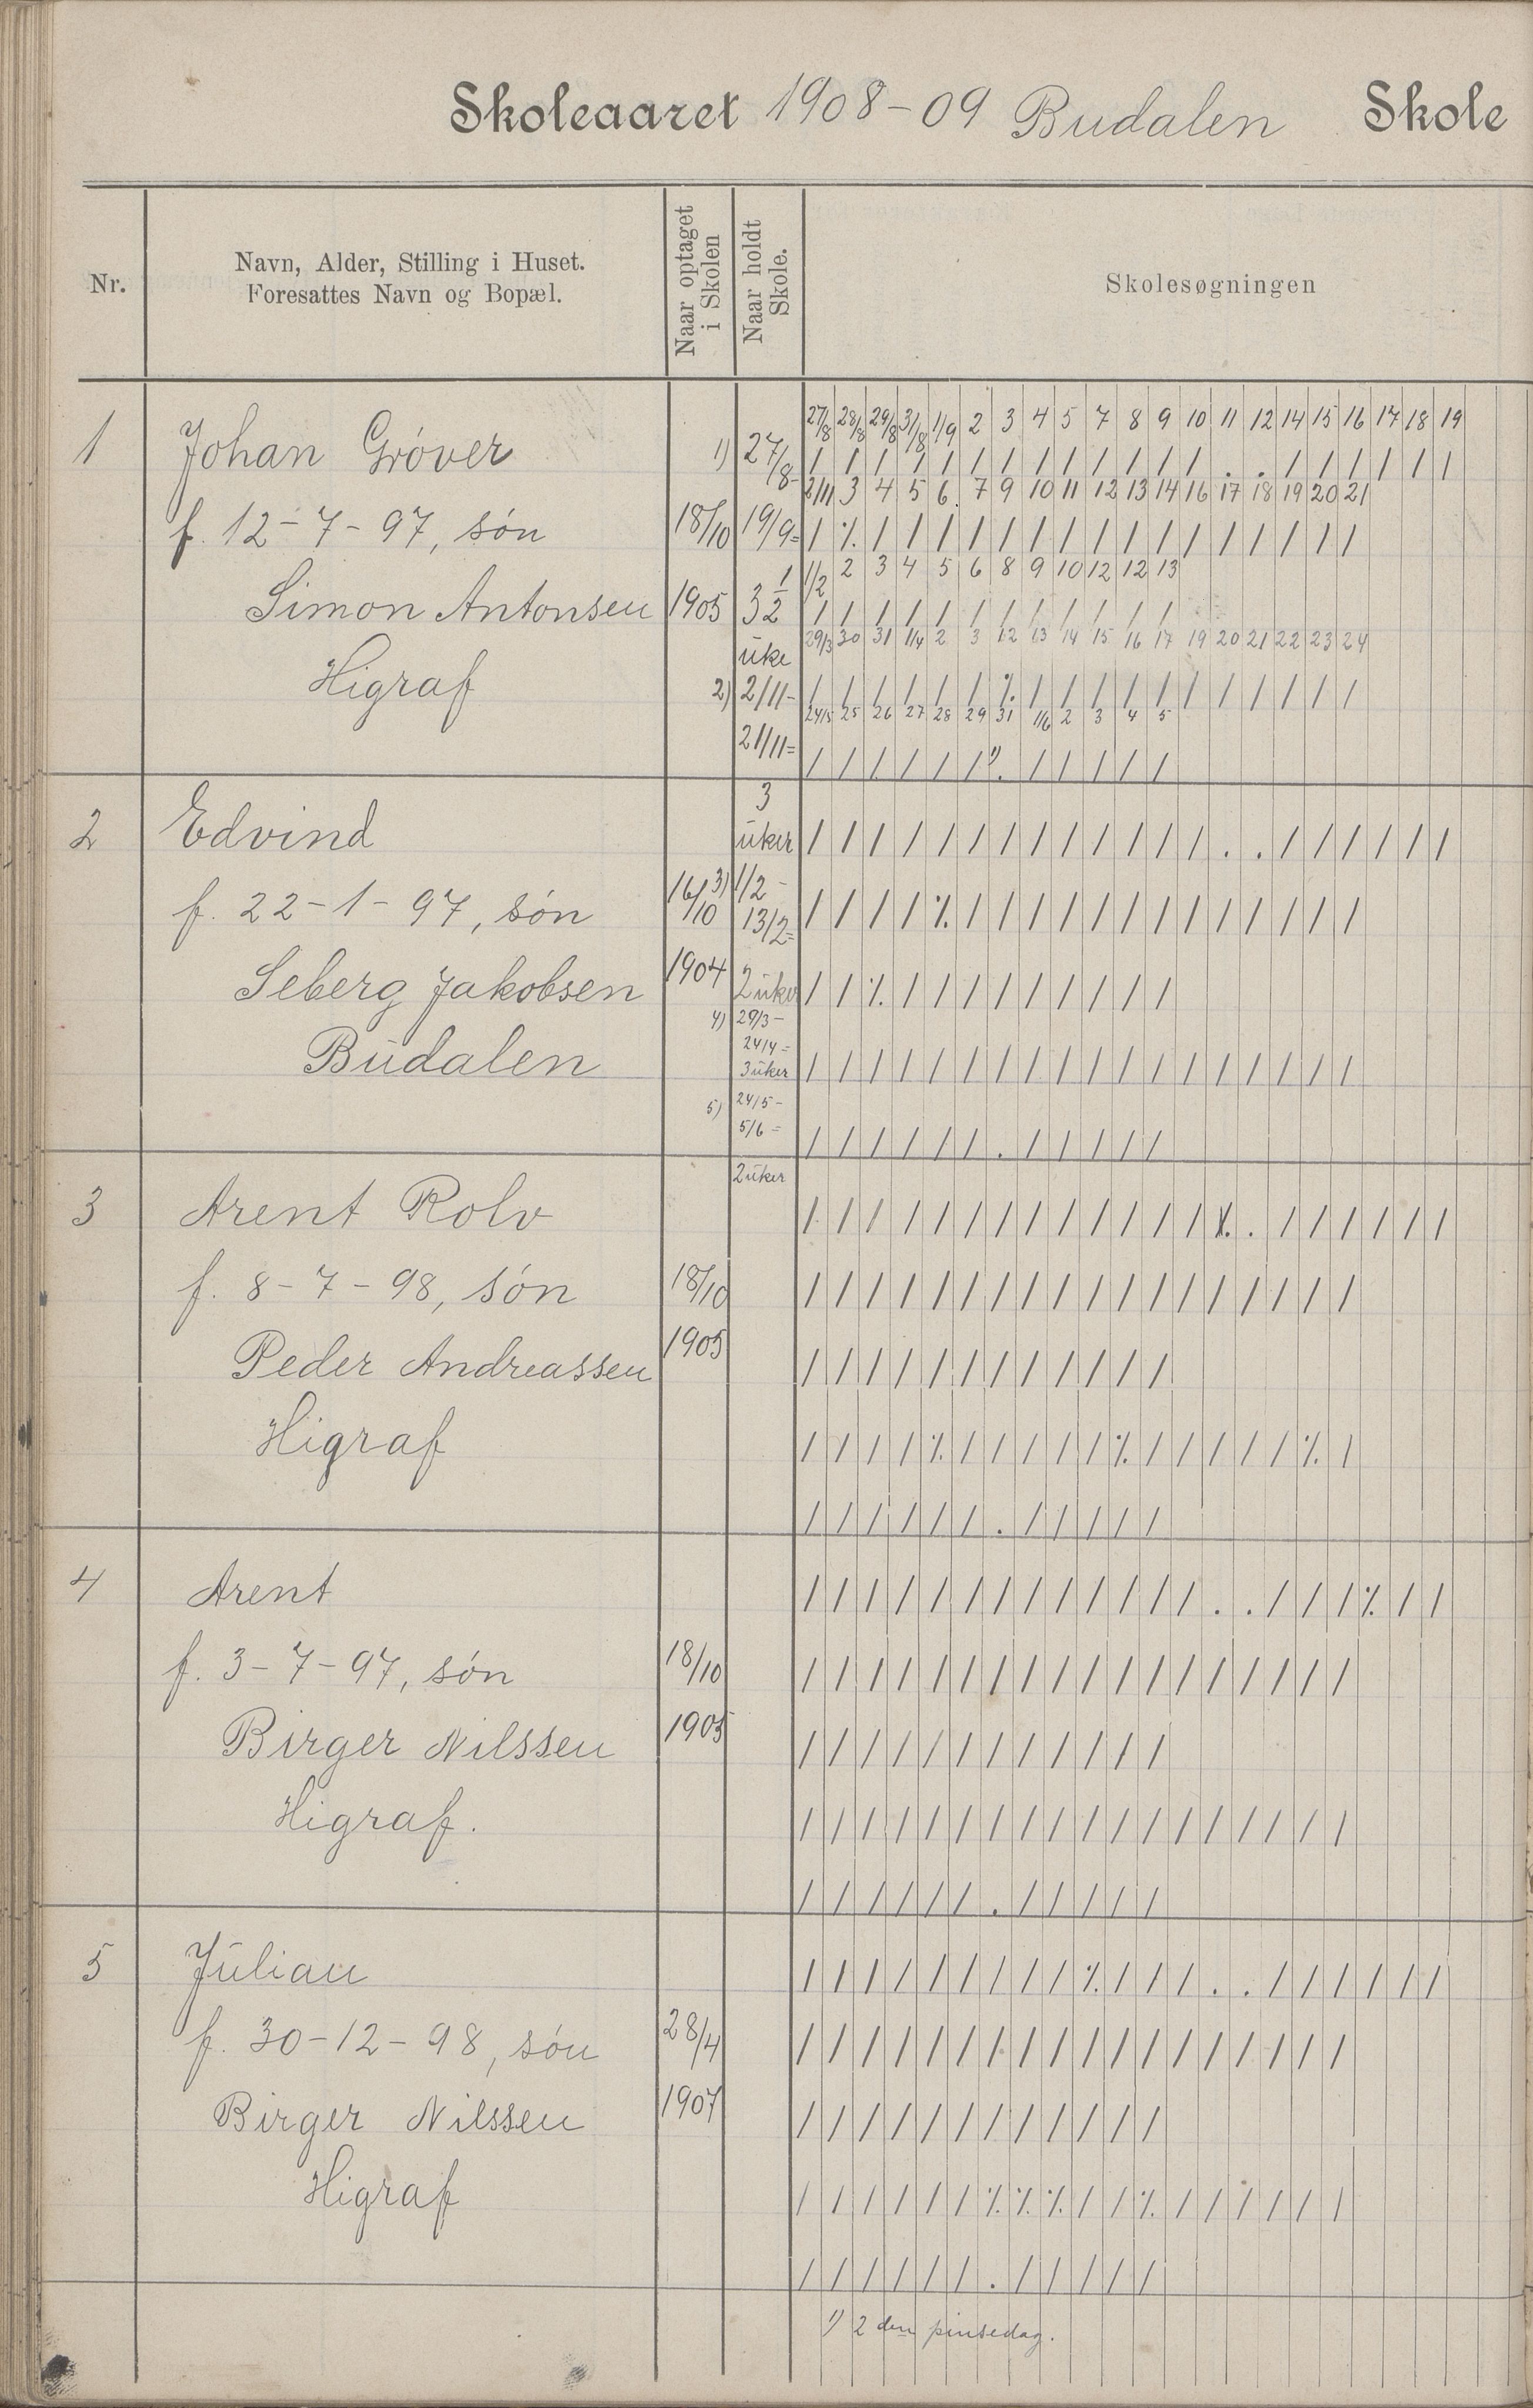 Skoleaaret 1908-09 Budalen Skole
Nr.
Navn, Alder, Stilling i Huset.
Foresattes Navn og Bopæl.
Naar optaget
i Skolen
Naar holdt
Skole.
Skolesøgningen
27/8 28/8 29/8 31/8 1/9 2 3 4 5 7 8 9 10 11 12 14 15 16 17 18 19
1 Johan Gröver 1) 27/8- / / / / / / / / / / / / / . . / / / / / /
2/11 3 4 5 6 7 9 10 11 12 13 14 16 17 18 19 20 21
f. 12-7-97, søn 18/10 19/9= / ٪ / / / / / / / / / / / / / / / /
1/2 2 3 4 5 6 8 9 10 12 12 13
Simon Antonsen 1905 3 1/2 / / / / / / / / / / / /
uke 29/3 30 31 1/4 2 3 12 13 14 15 16 17 19 20 21 22 23 24
Higraf 2) 2/11- / / / / / / ٪ / / / / / / / / / / /
24/5 25 26 27 28 29 31 1/6 2 3 4 5
21/11= / / / / / / 1). / / / / /
3
2 Edvind uker / / / / / / / / / / / / / . . / / / / / /
f. 22-1-97, søn 16/10 3) 1/2- 13/2= / / / / ٪ / / / / / / / / / / / / /
Seberg Jakobsen 1904 2 uker / / ٪ / / / / / / / / /
4) 29/3-
24/4=
Budalen 3 uker / / / / / / / / / / / / / / / / / /
5) 24/5-
5/6= / / / / / / . / / / / /
2 uker
3 Arent Rolv / / / / / / / / / / / / / ٪ . / / / / / /
f. 8-7-98, søn 18/10 / / / / / / / / / / / / / / / / / /
Peder Andreassen 1905 / / / / / / / / / / / /
Higraf / / / / ٪ / / / / / ٪ / / / / / ٪ /
/ / / / / / . / / / / /
4 Arent / / / / / / / / / / / / / . . / / / ٪ / /
f. 3-7-97, søn 18/10 / / / / / / / / / / / / / / / / / /
Birger Nilssen 1905 / / / / / / / / / / / /
Higraf. / / / / / / / / / / / / / / / / / /
/ / / / / / . / / / / /
5 Julian / / / / / / / / / ٪ / / / . . / / / / / /
f. 30-12-98, søn 28/4 / / / / / / / / / / / / / / / / / /
Birger Nilssen 1907 / / / / / / / / / / / /
Higraf / / / / / / ٪ ٪ ٪ / / ٪ / / / / / /
/ / / / / / . / / / / /
1) 2 den pinsedag.